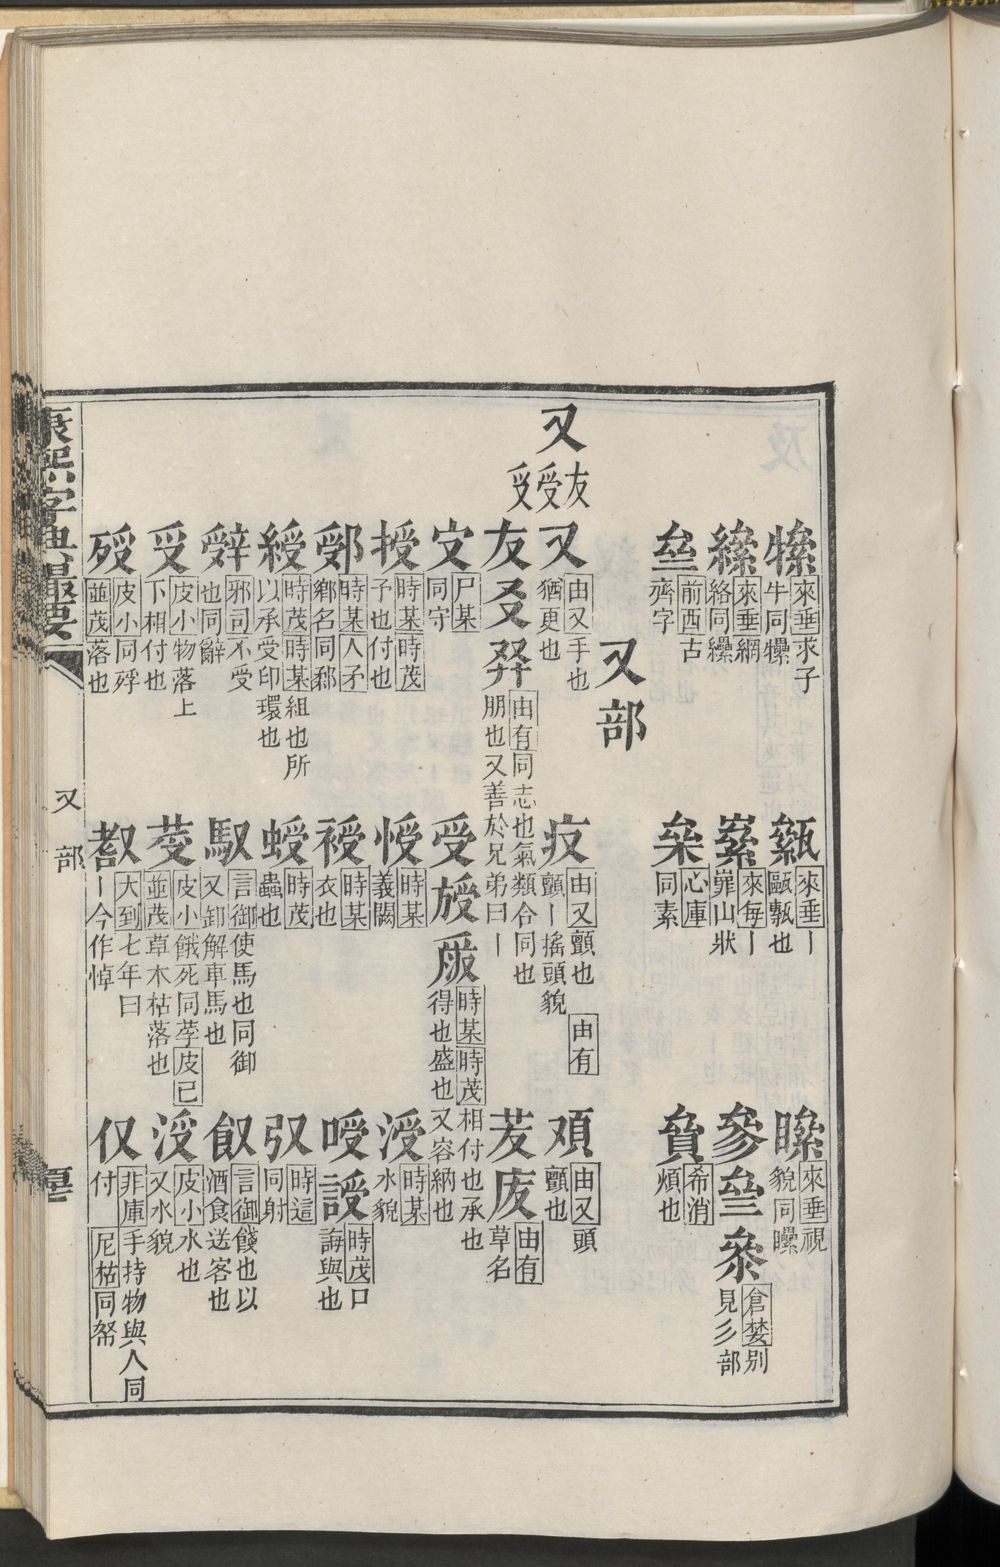 㹎 來垂求子牛同㹎
甀 來垂丨甌甀也
矋 來垂視貌同矋
纝 來垂網絡同纝
㠥 來每丨罪山狀
參 叄 叅 倉婪別見彡部
垒 前西古齊字
枀 心庫同素
貟 希消煩也
又部
又 友受𠬪
又 由又手也猶更也
疫 由又顫也 由有顫丨搖頭貌
頄 由又頭顫也
友 㕛 𦐮 由有同志也氣類合同也朋也又善於兄弟曰丨
苃 庋 由有草名
安 尸某同守
受 𣃘 𠭥 時某 時茂 相付也承也得也盛也又容納也
授 時某 時茂 予也付也
慢 時某義闕
涭 時某水貌
鄋 時某人矛鄉名同鄀
䘵 時某衣也
嗳 諼 時茂口誨與也
綬 時茂 時某 組也所以承受印環也
䖟 時茂蟲也
㕠 時這同射
辤 邪司不受也同辭
馭 言御使馬也同御又卸解車馬也
䬣 言御餞也以酒食送客也
𠬪 皮小物落上下相付也
荽 皮小餓死同莩 皮已 並茂草木枯落也
浮 皮小水也又水貌
㱩 皮小同殍 並茂落也
𣀳 大到七年曰丨今作悼
仅 非庫手持物與人同付 尼枯同帑
康熙字典撮要
又部